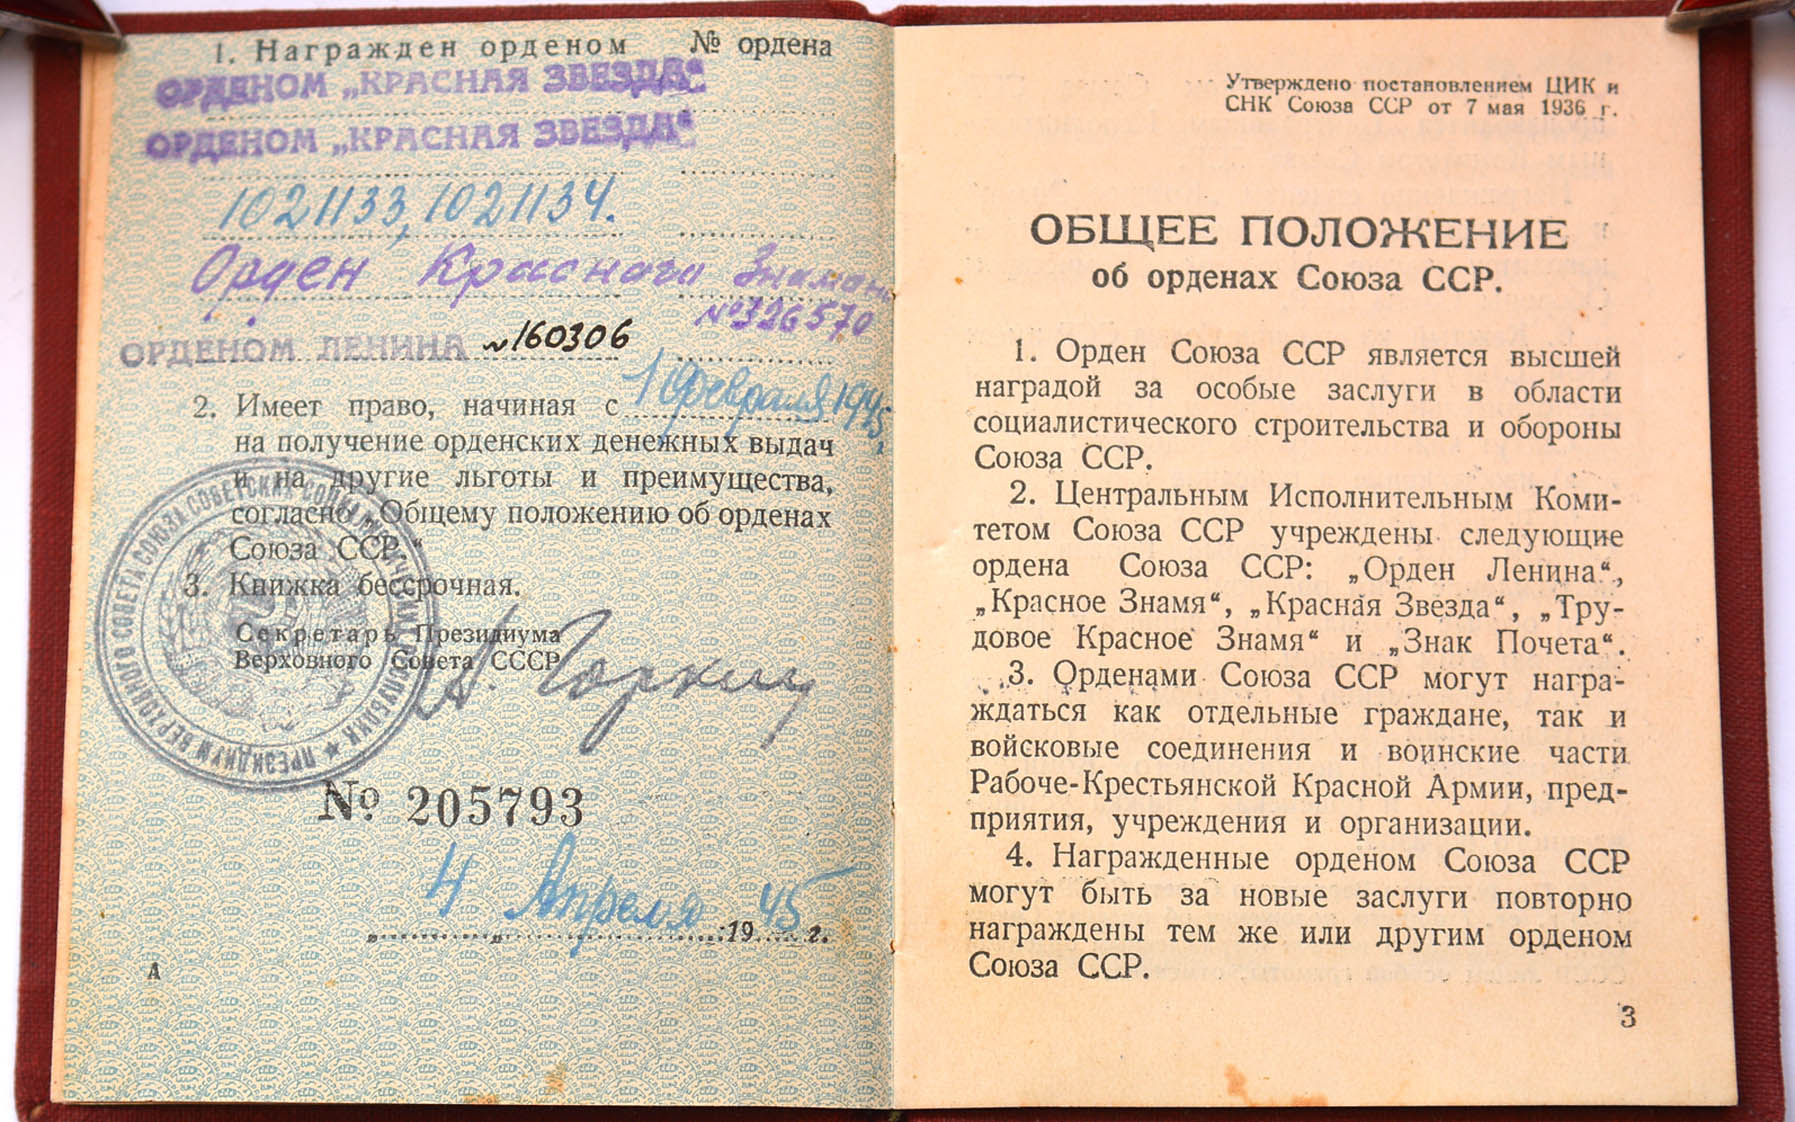 1. Награжден орденом № ордена
ОРДЕНОМ „КРАСНАЯ ЗВЕЗДА“
ОРДЕНОМ „КРАСНАЯ ЗВЕЗДА“
1021133, 1021134.
Орден Красного Знамени
№326570
ОРДЕНОМ ЛЕНИНА №160306
2. Имеет право, начиная с 1 Февраля 1945,
на получение орденских денежных выдач
и на другие льготы и преимущества,
согласно „Общему положению об орденах
Союза ССР“
3. Книжка бессрочная.
Секретарь Президиума
Верховного Совета СССР
А. Горкин
ПРЕЗИДИУМ ВЕРХОВНОГО СОВЕТА СОЮЗА СОВЕТСКИХ СОЦИАЛИСТИЧЕСКИХ РЕСПУБЛИК ★
№ 205793
4 Апреля 1945 г.
А
Утверждено постановлением ЦИК и
СНК Союза ССР от 7 мая 1936 г.
ОБЩЕЕ ПОЛОЖЕНИЕ
об орденах Союза ССР.
1. Орден Союза ССР является высшей
наградой за особые заслуги в области
социалистического строительства и обороны
Союза ССР.
2. Центральным Исполнительным Коми-
тетом Союза ССР учреждены следующие
ордена Союза ССР: „Орден Ленина“,
„Красное Знамя“, „Красная Звезда“, „Тру-
довое Красное Знамя“ и „Знак Почета“.
3. Орденами Союза ССР могут награ-
ждаться как отдельные граждане, так и
войсковые соединения и воинские части
Рабоче-Крестьянской Красной Армии, пред-
приятия, учреждения и организации.
4. Награжденные орденом Союза ССР
могут быть за новые заслуги повторно
награждены тем же или другим орденом
Союза ССР.
3